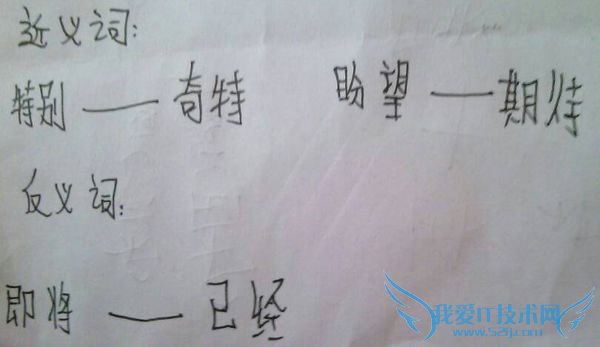 近义词:
特别——奇特 盼望——期待
反义词:
即将——已经
我爱IT技术网
www.52ij.com